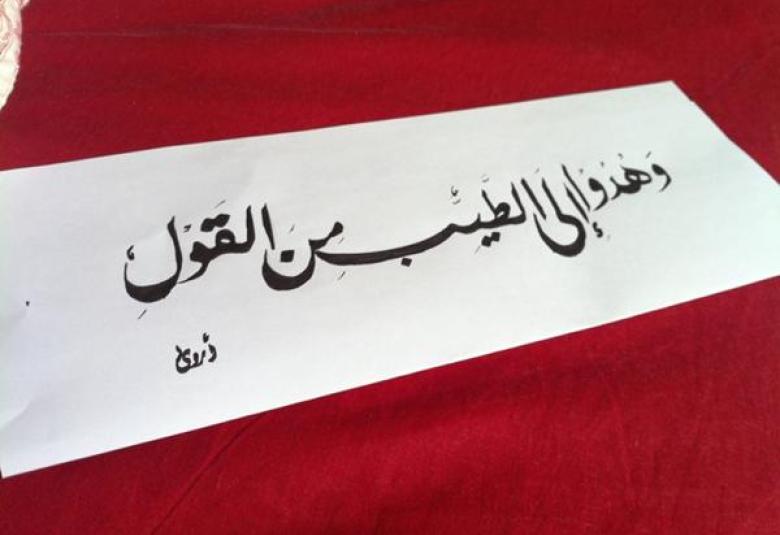 وَهُدُوٓا إِلَى الطَّيِّبِ مِنَ القَوْلِ
أروى